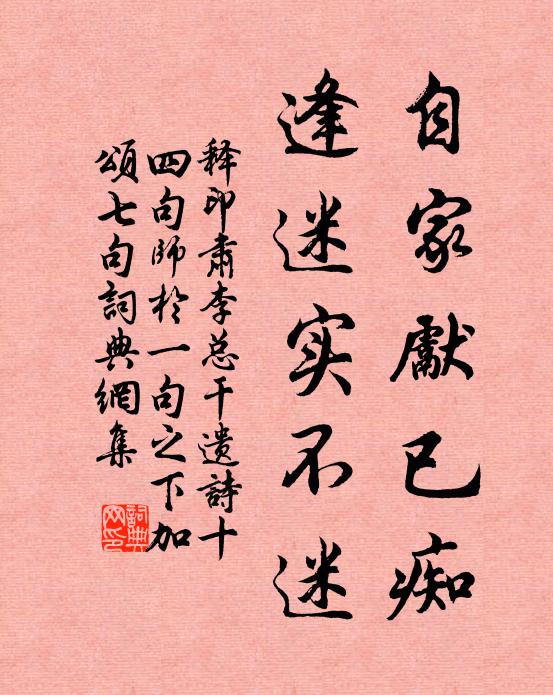 自家獻已痴
逢迷实不迷
释印肃李总干遗詩十
四句師於一句之下加
頌七句詞典網集
詞典网印